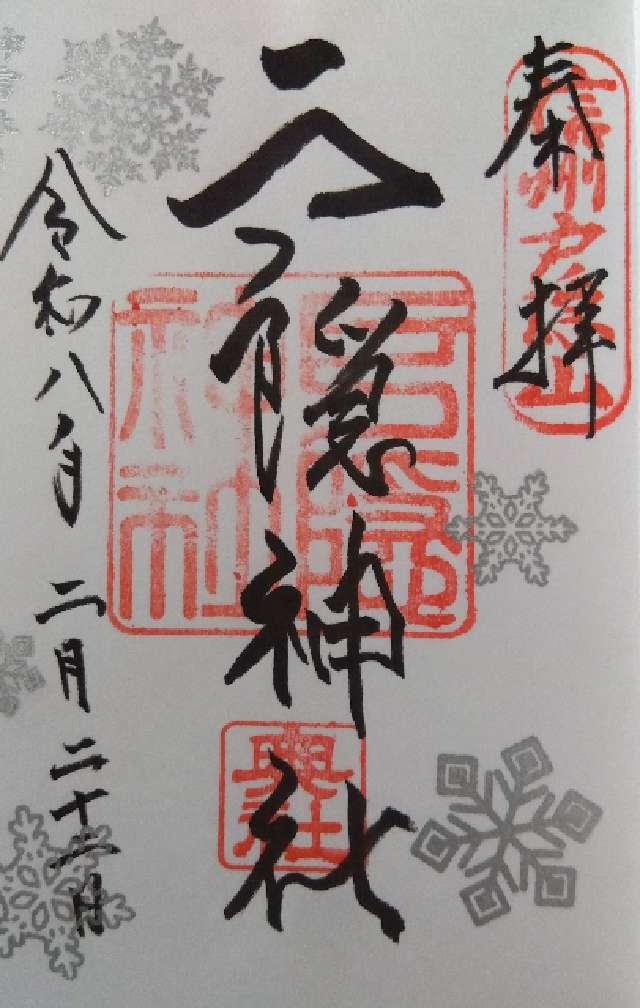 奉拝
信州戸隠山
戸隠神社
戸隠神社
奥社
令和八年 二月二十二日